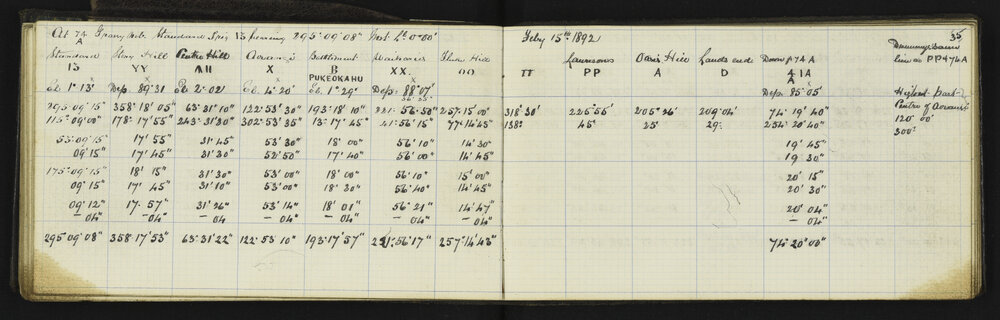 At 74 A
Standard 13 bearing 295°09'08" Inst Lt 0°00' Feby 15th 1892 35
Standard Hill Centre Hill Battlement Hill Oasis Hill Lands end Down p 74 A
13 YY AH X B XX. OO TT PP A D 41A line as PP 474A
PUKEOKAHU A
El 1°13' Dep 89°31 El 2°02' El 4°20' El 1°29' Dep: 88°07' Dep: 85°05 Highest part
Centre of
295°09'15" 358°18'05" 63°31'10" 122°53'30" 193°18'10" 221°56'50" 257°15'00" 318°30' 225°55' 205°26' 209°04' 74°19'40" 120°00'
115°09'00" 178°17'55" 243°31'30" 302°53'35" 13°17'45" 41°56'15" 77°14'45" 138° 45° 25° 29° 254°20'40" 300°
55°09'15" 17'55 31'45 53'30" 18'00" 56'10" 14'30 19'45"
09'15" 17'45" 31'30" 52'50" 17'40" 56'00" 14'45" 19 30"
175°09'15" 18'15" 31'30" 53'00" 18'00" 56'10" 15'00" 20'15"
09'15" 17'45" 31'10" 53'00" 18'30" 56'40" 14'45" 20'30"
09'12" 17'57" 31'26" 53'14" 18'01" 56'21" 14'47" 20'04"
–04" –04" –04" –04" –04" –04" –04" –04"
295°09'08" 358°17'53" 63°31'22" 122°53'10" 193°17'57" 221°56'17" 257°14'43" 74°20'00"